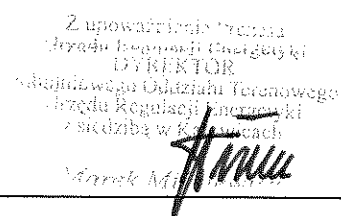 Z upoważnienia Prezesa
Urzędu Regulacji Energetyki
DYREKTOR
Oddziału Terenowego
Urzędu Regulacji Energetyki
z siedzibą w Katowicach
Marek